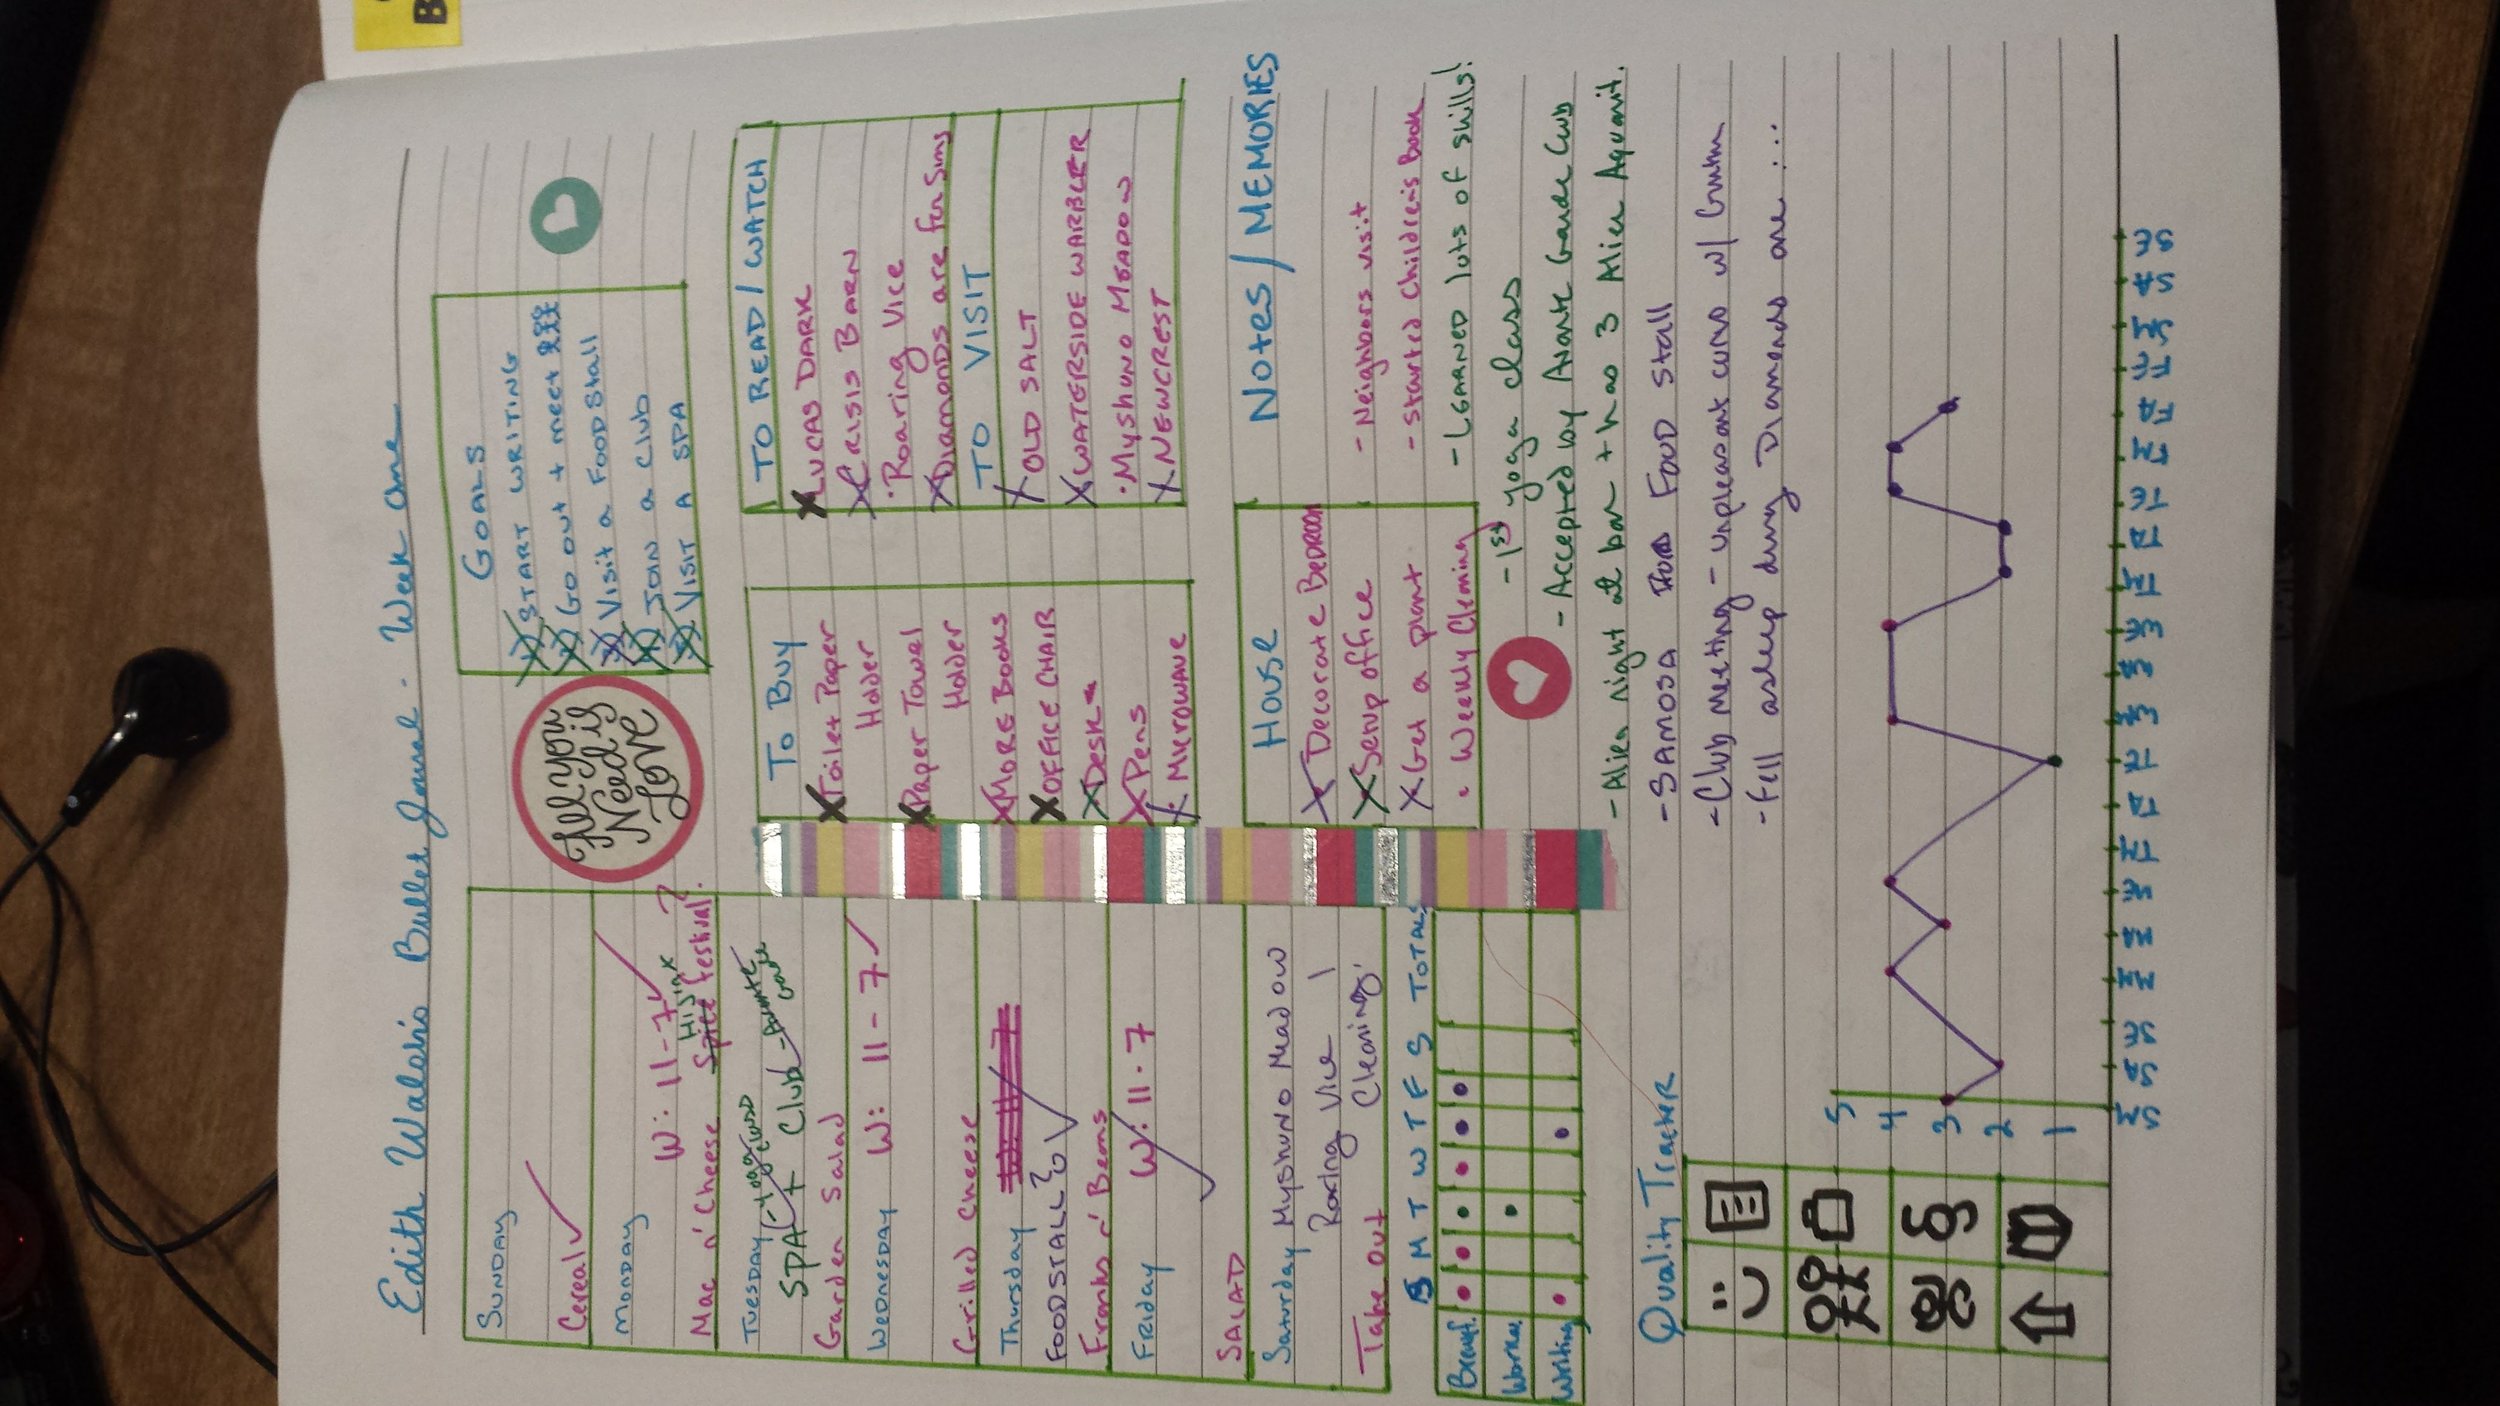 B
Edith Walsh's Bullet Journal - Week One
GOALS
START WRITING
Go out + meet
Visit a Food Stall
JOIN a Club
VISIT A SPA
All you
Need is
Love
SUNDAY
Cereal
MONDAY
W: 11-7
HiJinx
Mac n' Cheese Spice Festival?
TUESDAY
SPA + Club
Garden Salad
WEDNESDAY
W: 11-7
Grilled Cheese
Thursday
FOOD STALL
Franks n' Beans
FRIDAY
W: 11-7
SALAD
Saturday Myshuno Meadow
Roaring Vice
Cleaning
Take Out
To Buy
Toilet Paper
Holder
Paper Towel
Holder
MORE Books
OFFICE CHAIR
Desk
Pens
MICROWAVE
TO READ / WATCH
LUCAS DARK
CRISIS BARN
Roaring Vice
Diamonds are for Sims
TO VISIT
OLD SALT
WATERSIDE WARBLER
Myshuno Meadow
NEWCREST
House
Decorate BEDROOM
Setup office
Get a plant
Weekly Cleaning
Notes / MEMORIES
- Neighbors visit
- Started Children's Book
- LEARNED lots of skills!
- 1st yoga class
- Accepted by Avant Garde Club
- Alien night at bar + has 3 Alien Aquaint.
- SAMOSA Food Stall
- Club meeting - unpleasant convo w/ Gunther
- Fell asleep during Diamonds are ...
S M T W T F S TOTALS
Breakf.
Workout
Writing
Quality Tracker
5
4
3
2
1